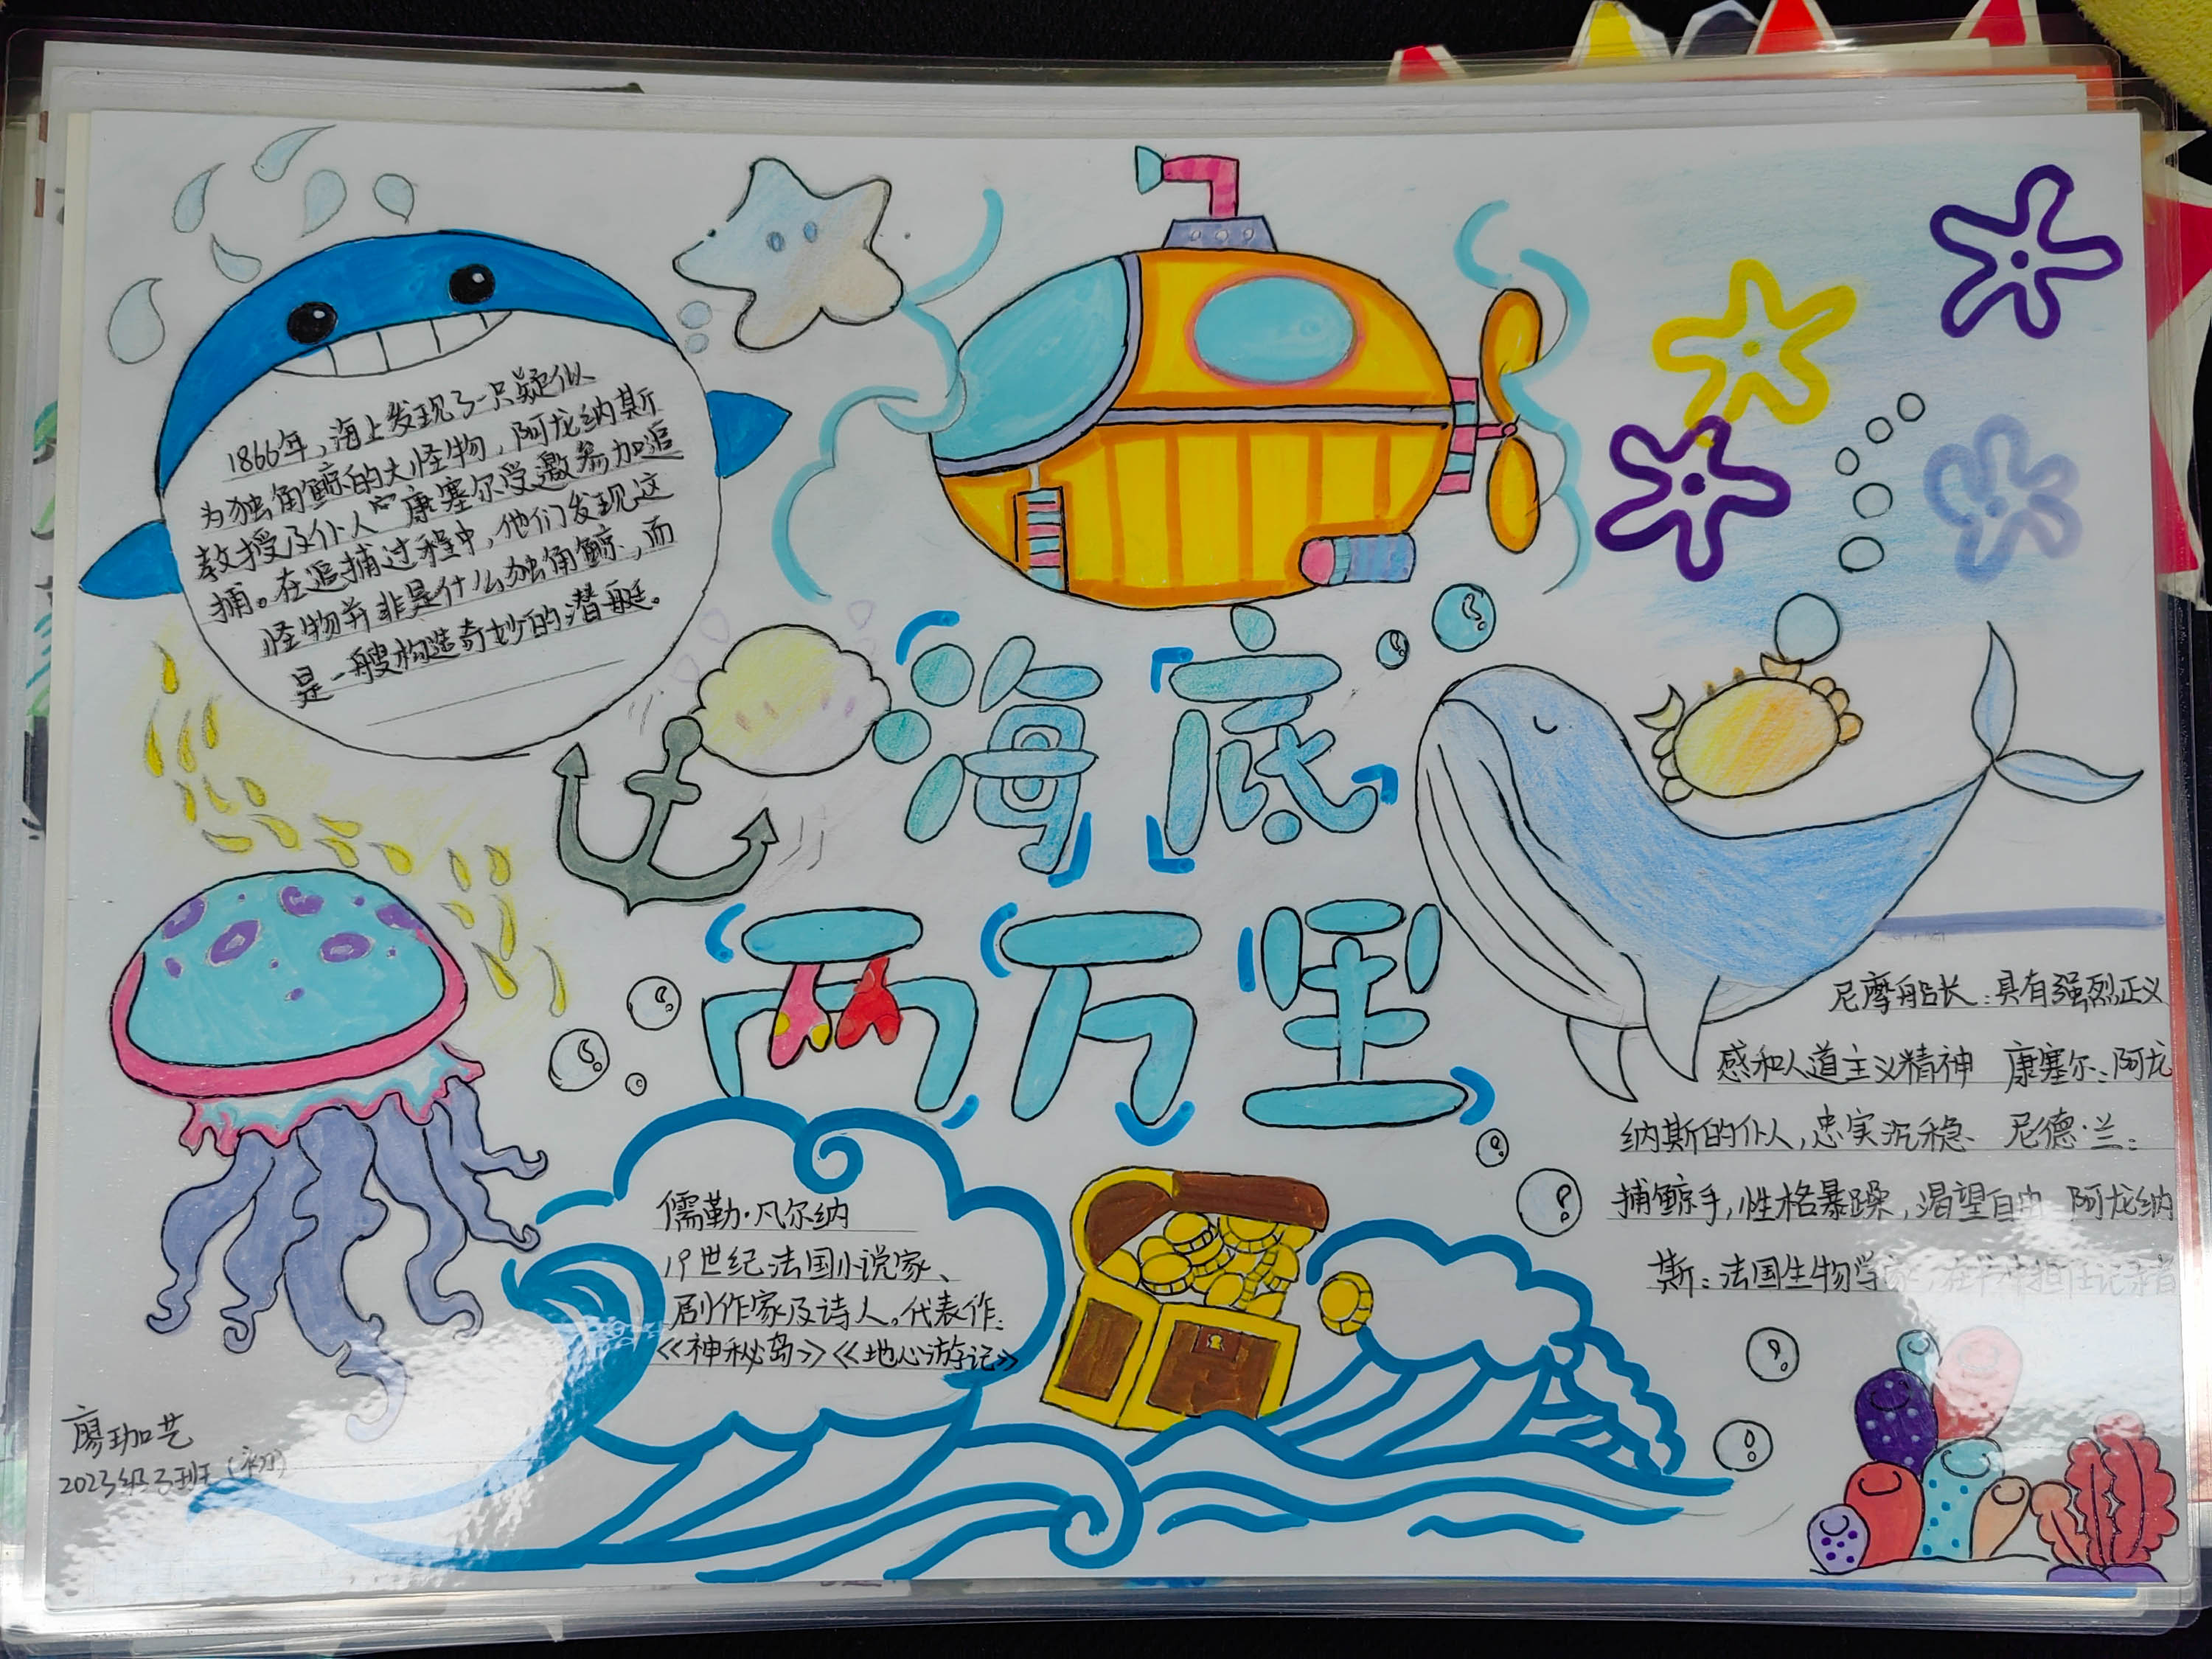 1866年，海上发现了一只疑似
为独角鲸的大怪物，阿龙纳斯
教授及仆人康塞尔受邀参加追
捕。在追捕过程中，他们发现这
怪物并非是什么独角鲸，而
是一艘构造奇妙的潜艇。
海底
两万里
尼摩船长：具有强烈正义
感和人道主义精神 康塞尔：阿龙
纳斯的仆人，忠实沉稳 尼德·兰：
捕鲸手，性格暴躁，渴望自由 阿龙纳
斯：法国生物学家，在书中担任记录者
儒勒·凡尔纳
19世纪法国小说家、
剧作家及诗人。代表作：
《神秘岛》《地心游记》
廖珈艺
2023级3班（初）